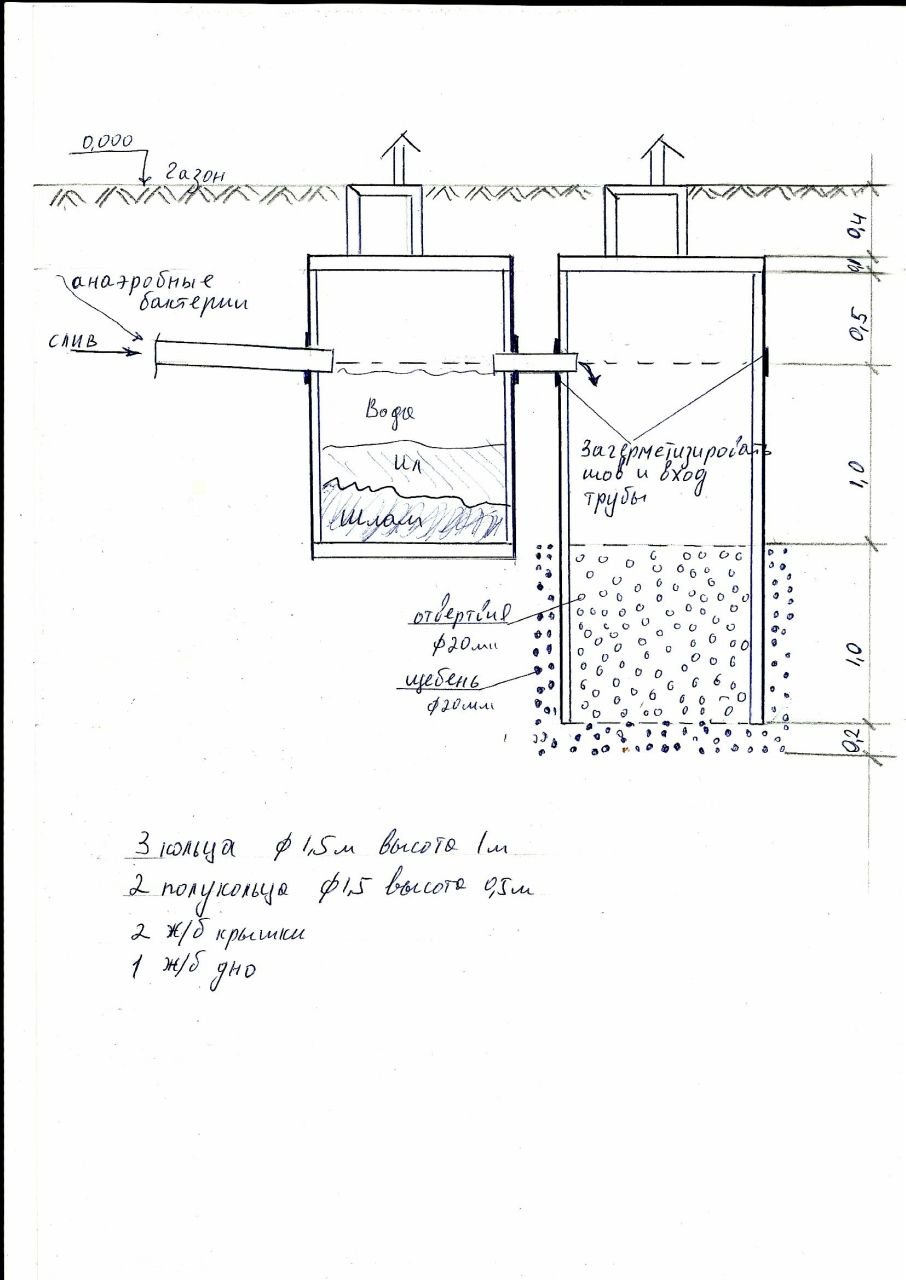 0,000
газон
анаэробные
бактерии
слив
Вода
Ил
Шлам
Загерметизировать
шов и вход
трубы
отвертвия
ф20мм
щебень
ф20мм
0,4
0,1
0,5
1,0
1,0
0,2
3 кольца ф 1,5м высота 1м
2 полукольца ф1,5 высота 0,5м
2 ж/б крышки
1 ж/б дно